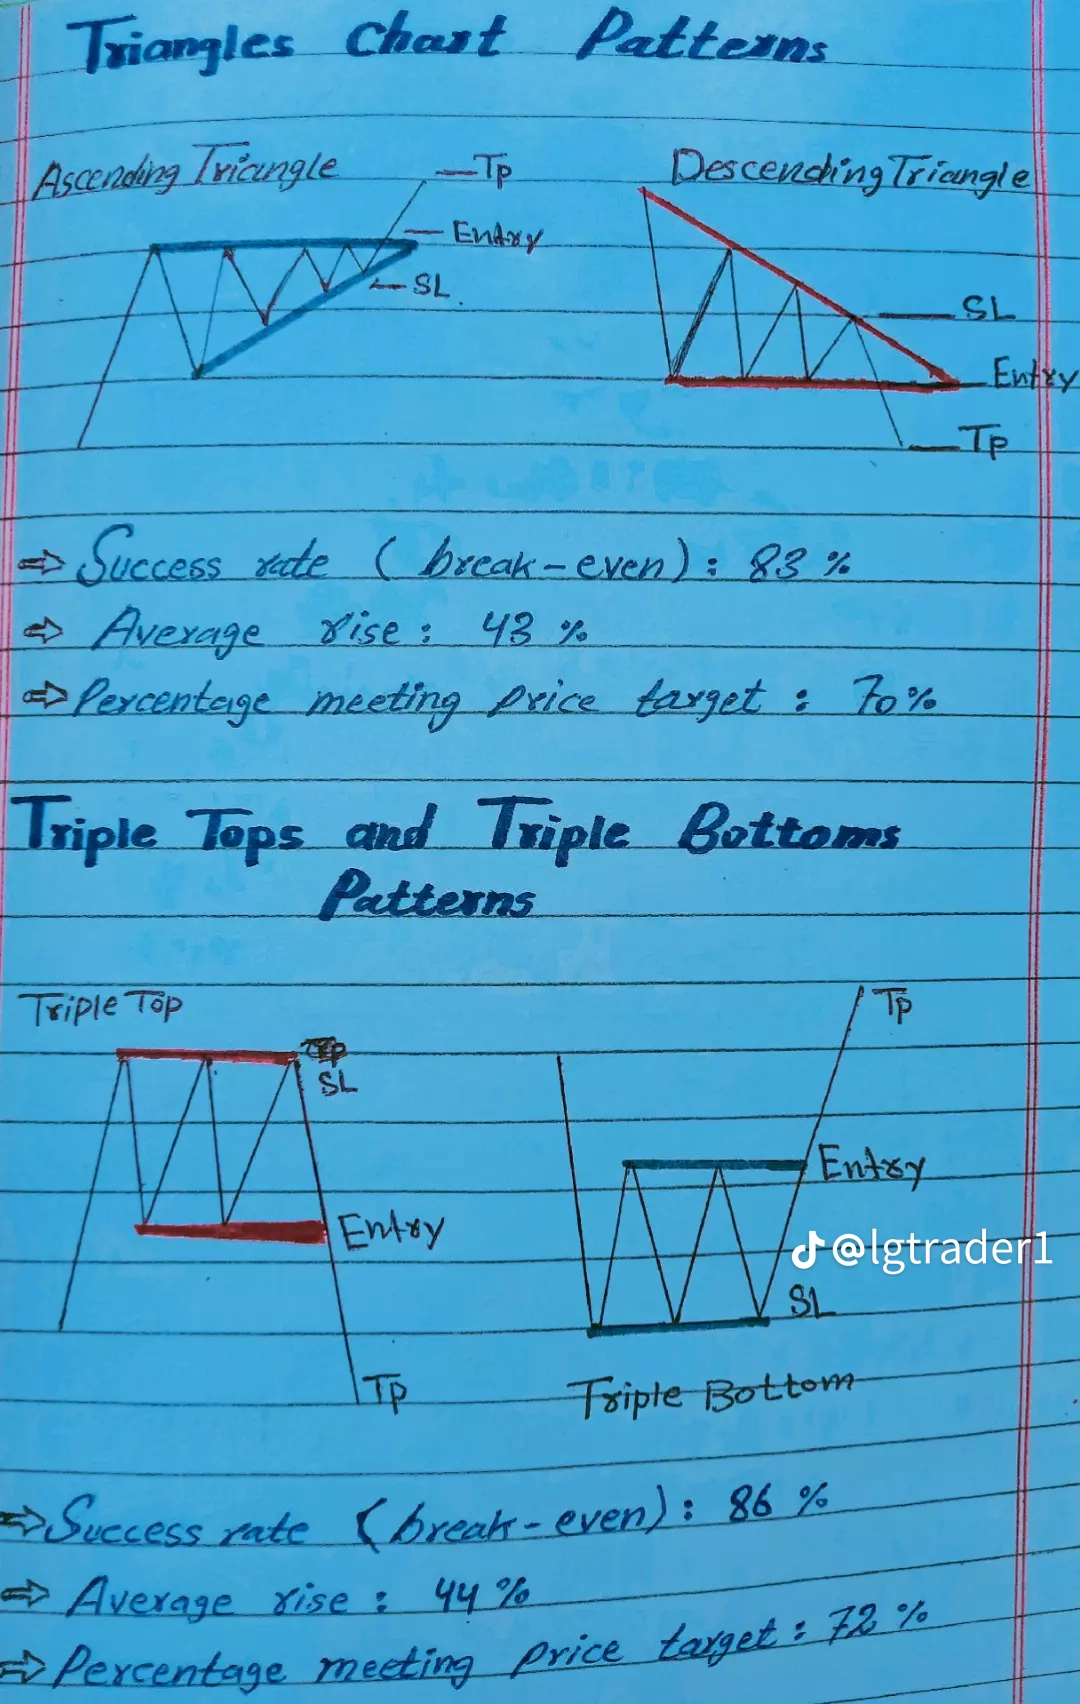 Triangles Chart Patterns
Ascending Triangle
Tp
Entry
SL
Descending Triangle
SL
Entry
Tp
⇒ Success rate (break-even): 83 %
⇒ Average rise: 43 %
⇒ Percentage meeting price target: 70%
Triple Tops and Triple Bottoms
Patterns
Triple Top
SL
Entry
Tp
Tp
Entry
@lgtrader1
SL
Triple Bottom
⇒ Success rate (break-even): 86 %
⇒ Average rise: 44 %
⇒ Percentage meeting price target: 72 %